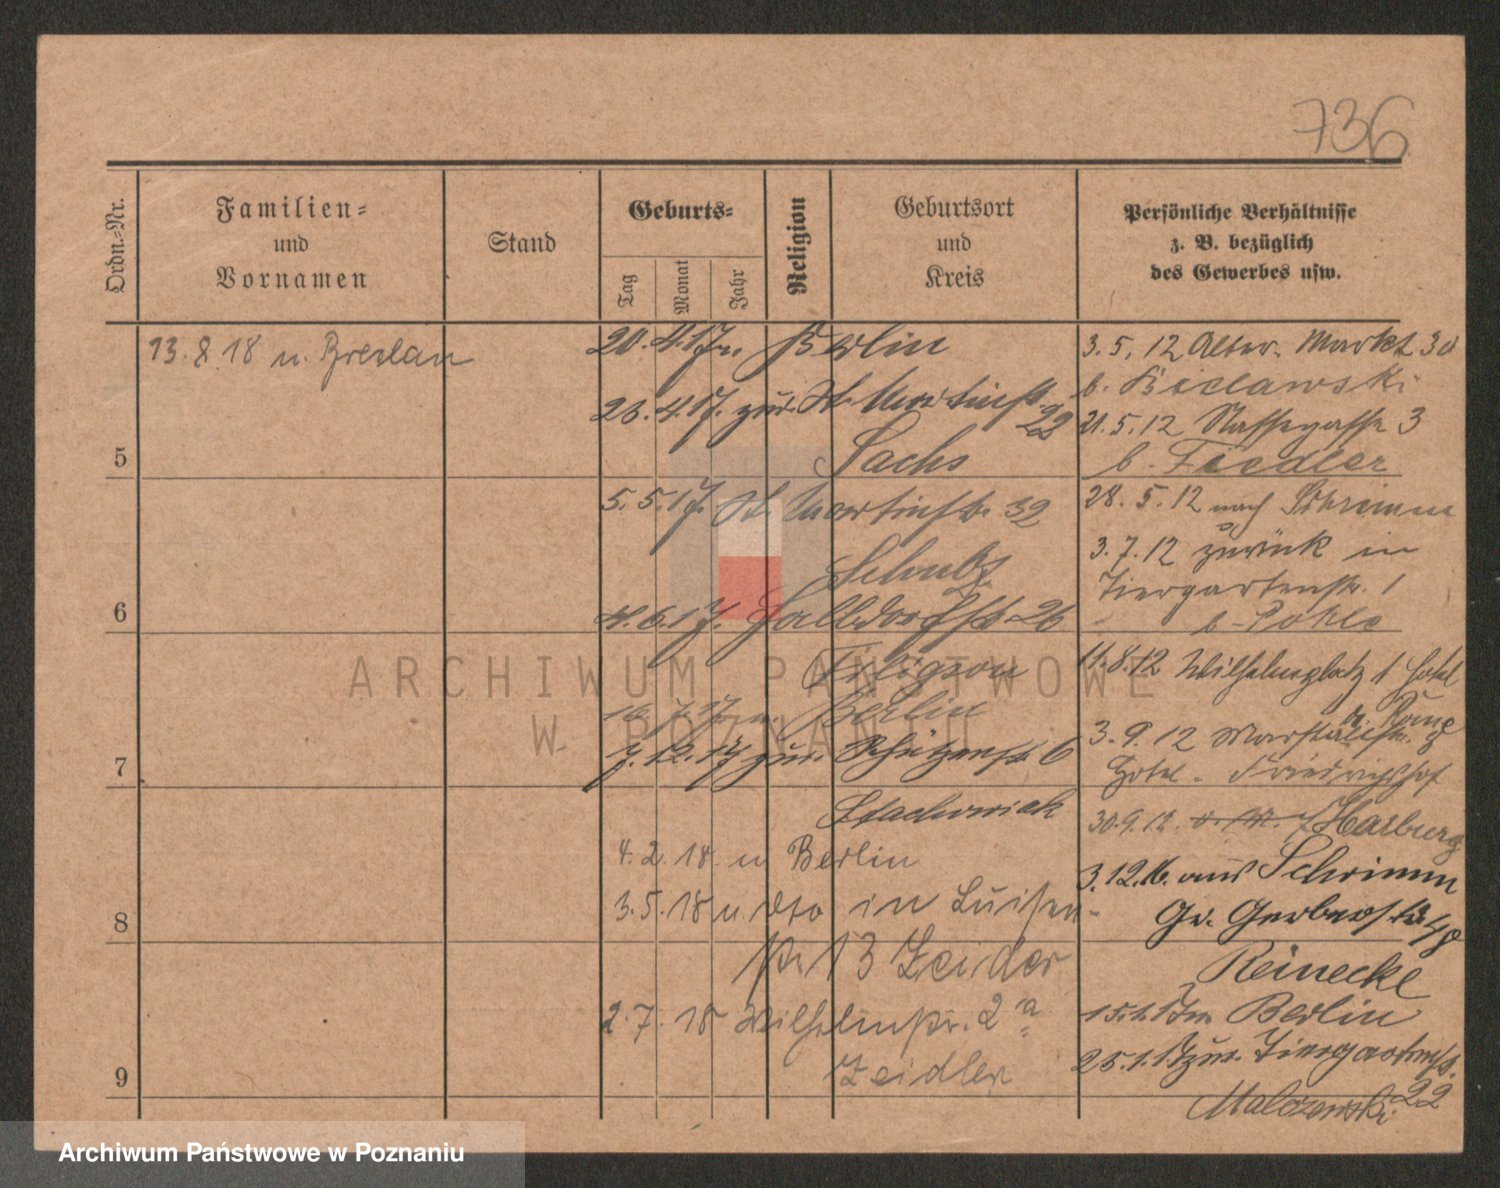 736
Ordn.-Nr.
Familien-
und
Vornamen
Stand
Geburts-
Tag
Monat
Jahr
Religion
Geburtsort
und
Kreis
Persönliche Verhältnisse
z. B. bezüglich
des Gewerbes usw.
13.8.18 n. Breslau
5
6
7
8
9
20.4.17 n. Berlin
23.4.17. zur. St. Martinstr.
22
Sachs
5.5.17. St. Martinstr. 32
Schulz
4.6.17.
26
16.7.17 n. Berlin
7.12.17 zur. Schützenstr. 6
Stachowiak
4.2.18. n Berlin
3.5.18 n. dto in Luisen-
str 13 Zeidler
2.7.18 Wilhelmstr. 2a
Zeidler
3.5.12 Alter. Markt 30
b. Bielawski
21.5.12 Nassegasse 3
b. Fiedler
28.5.12 nach Schrimm
3.7.12 zurück in
Tiergartenstr. 1
b. Pohle
11.8.12 Wilhelmplatz 1 Hotel
de Rome
3.9.12 Marstallstr. 8
Hotel. Friedrichshof
30.9.12. Harburg
3.12.16. aus Schrimm
Gr. Gerberstr.
Reinecke
15.1.17 n Berlin
25.1.17 zur. Tiergartenstr.
22
Malczewski
ARCHIWUM PAŃSTWOWE
W POZNANIU
Archiwum Państwowe w Poznaniu